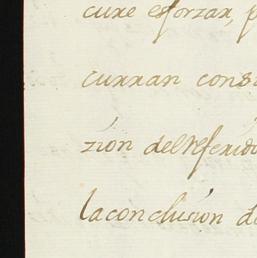 cure esforzar, p
curran cons
zion del referido
la conclusion de